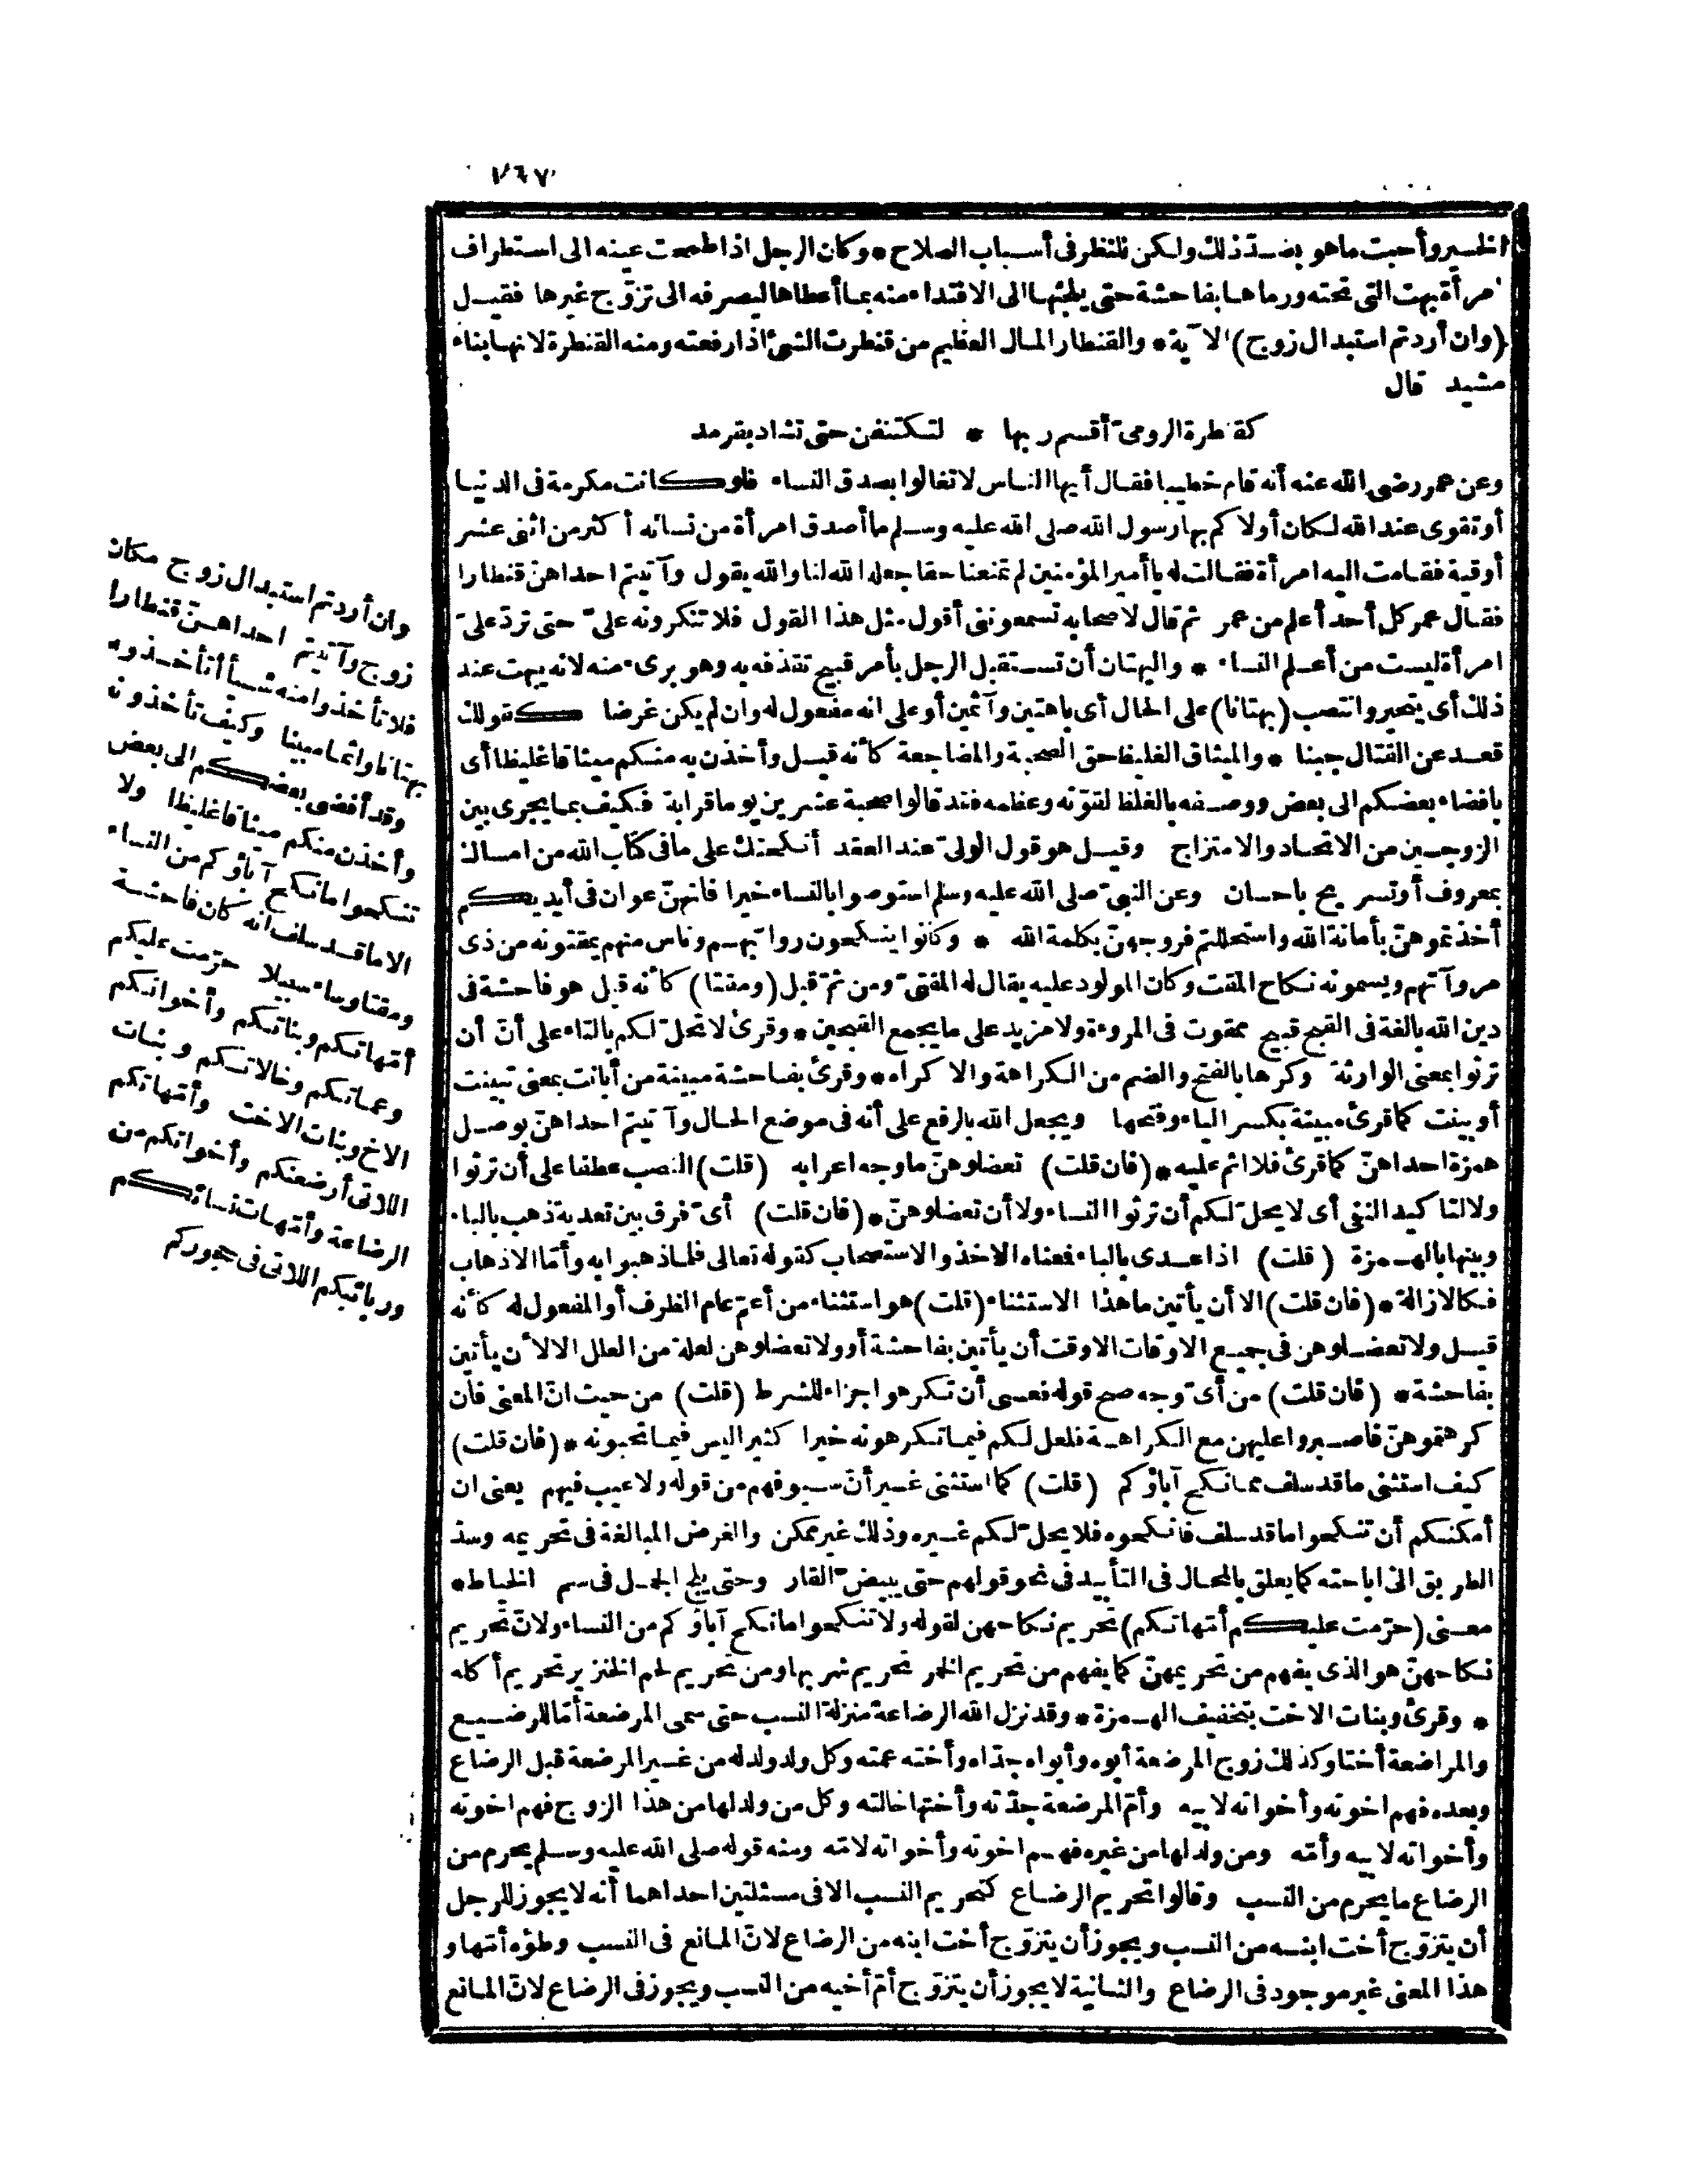 ٢٦٧
الخير وأحبت ما هو بضدّ ذلك ولكن للنظر فى أسباب الصلاح * وكان الرجل اذا طمعت عينه الى استطراف
امرأة بهت التى تحته ورماها بفاحشة حتى يلجئها الى الافتداء منه بما أعطاها ليصرفه الى تزوّج غيرها فقيل
(وان أردتم استبدال زوج) الآية * والقنطار المال العظيم من قنطرت الشئ اذا رفعته ومنه القنطرة لانها بناء
مشيد قال
كقنطرة الرومىّ أقسم ربها * لتكتنفن حتى تشاد بقرمد
وعن عمر رضى الله عنه أنه قام خطيبا فقال أيها الناس لا تغالوا بصدق النساء فلو كانت مكرمة فى الدنيا
أو تقوى عند الله لكان أولاكم بها رسول الله صلى الله عليه وسلم ما أصدق امرأة من نسائه أكثر من اثنى عشر
أوقية فقامت اليه امرأة فقالت له يا أمير المؤمنين لم تمنعنا حقا جعله الله لنا والله يقول وآتيتم احداهنّ قنطارا
فقال عمر كل أحد أعلم من عمر ثم قال لاصحابه تسمعوننى أقول مثل هذا القول فلا تنكرونه علىّ حتى تردّ علىّ
امرأة ليست من أعلم النساء * والبهتان أن تستقبل الرجل بأمر قبيح تقذفه به وهو برىء منه لانه يبهت عند
ذلك أى يتحير وانتصب (بهتانا) على الحال أى باهتين وآثمين أو على انه مفعول له وان لم يكن غرضا كقولك
قعد عن القتال جبنا * والميثاق الغليظ حق الصحبة والمضاجعة كأنه قيل وأخذن به منكم ميثاقا غليظا أى
بافضاء بعضكم الى بعض ووصفه بالغلظ لقوّته وعظمه فقد قالوا صحبة عشرين يوما قرابة فكيف بما يجرى بين
الزوجين من الاتحاد والامتزاج وقيل هو قول الولىّ عند العقد أنكحتك على ما فى كتاب الله من امساك
بمعروف أو تسريح باحسان وعن النبىّ صلى الله عليه وسلم استوصوا بالنساء خيرا فانهنّ عوان فى أيديكم
أخذتموهنّ بأمانة الله واستحللتم فروجهنّ بكلمة الله * وكانوا ينكحون روابّهم وناس منهم يمقتونه من ذى
مروآتهم ويسمونه نكاح المقت وكان المولود عليه يقال له المقتىّ ومن ثمّ قيل (ومقتا) كأنه قيل هو فاحشة فى
دين الله بالغة فى القبح قبيح ممقوت فى المروءة ولا مزيد على ما يجمع القبحين * وقرئ لا تحلّ لكم بالتاء على أنّ أن
ترثوا بمعنى الوراثة وكرها بالفتح والضم من الكراهة والاكراه * وقرئ بفاحشة مبينة من أبانت بمعنى تبينت
أو بينت كما قرئ مبينة بكسر الياء وفتحها ويجعل الله بالرفع على أنه فى موضع الحال وآتيتم احداهنّ بوصل
همزة احداهنّ كما قرئ فلا اثم عليه * (فان قلت) تعضلوهنّ ما وجه اعرابه (قلت) النصب عطفا على أن ترثوا
ولا لتأكيد النفى أى لا يحلّ لكم أن ترثوا النساء ولا أن تعضلوهنّ * (فان قلت) أىّ فرق بين تعدية ذهب بالباء
وبينها بالهمزة (قلت) اذا عدى بالباء فمعناه الاخذ والاستصحاب كقوله تعالى فلما ذهبوا به وأمّا الاذهاب
فكالازالة * (فان قلت) الا أن يأتين ما هذا الاستثناء (قلت) هو استثناء من أعمّ عام الظرف أو المفعول له كأنه
قيل ولا تعضلوهن فى جميع الاوقات الا وقت أن يأتين بفاحشة أو ولا تعضلوهن لعلة من العلل الا لأن يأتين
بفاحشة * (فان قلت) من أىّ وجه صح قوله فعسى أن تكرهوا جزاء للشرط (قلت) من حيث انّ المعنى فان
كرهتموهنّ فاصبروا عليهن مع الكراهة فلعل لكم فيما تكرهونه خيرا كثيرا ليس فيما تحبونه * (فان قلت)
كيف استثنى ما قد سلف مما نكح آباؤكم (قلت) كما استثنى غير أنّ سيوفهم من قوله ولا عيب فيهم يعنى ان
أمكنكم أن تنكحوا ما قد سلف فانكحوه فلا يحلّ لكم غيره وذلك غير ممكن والغرض المبالغة فى تحريمه وسدّ
الطريق الى اباحته كما يعلق بالمحال فى التأبيد فى نحو قولهم حتى يبيضّ القار وحتى يلج الجمل فى سم الخياط *
معنى (حرّمت عليكم أمّهاتكم) تحريم نكاحهن لقوله ولا تنكحوا ما نكح آباؤكم من النساء ولانّ تحريم
نكاحهنّ هو الذى يفهم من تحريمهنّ كما يفهم من تحريم الخمر تحريم شربها ومن تحريم لحم الخنزير تحريم أكله
* وقرئ وبنات الاخت بتخفيف الهمزة * وقد نزل الله الرضاعة منزلة النسب حتى سمى المرضعة أمّا للرضيع
والمراضعة أختا وكذلك زوج المرضعة أبوه وأبواه جدّاه وأخته عمته وكل ولد ولد له من غير المرضعة قبل الرضاع
وبعده فهم اخوته وأخواته لابيه وأمّ المرضعة جدّته وأختها خالته وكل من ولد لها من هذا الزوج فهم اخوته
وأخواته لابيه وأمّه ومن ولد لها من غيره فهم اخوته وأخواته لامّه ومنه قوله صلى الله عليه وسلم يحرم من
الرضاع ما يحرم من النسب وقالوا تحريم الرضاع كتحريم النسب الا فى مسئلتين احداهما أنه لا يجوز للرجل
أن يتزوّج أخت ابنه من النسب ويجوز أن يتزوّج أخت ابنه من الرضاع لانّ المانع فى النسب وطؤه أمّها و
هذا المعنى غير موجود فى الرضاع والثانية لا يجوز أن يتزوّج أمّ أخيه من النسب ويجوز فى الرضاع لانّ المانع
وان أردتم استبدال زوج مكان
زوج وآتيتم احداهنّ قنطارا
فلا تأخذوا منه شيأ أتأخذونه
بهتانا واثما مبينا وكيف تأخذونه
وقد أفضى بعضكم الى بعض
وأخذن منكم ميثاقا غليظا ولا
تنكحوا ما نكح آباؤكم من النساء
الا ما قد سلف انه كان فاحشة
ومقتا وساء سبيلا حرّمت عليكم
أمّهاتكم وبناتكم وأخواتكم
وعماتكم وخالاتكم وبنات
الاخ وبنات الاخت وأمّهاتكم
اللاتى أرضعنكم وأخواتكم من
الرضاعة وأمّهات نسائكم
وربائبكم اللاتى فى حجوركم